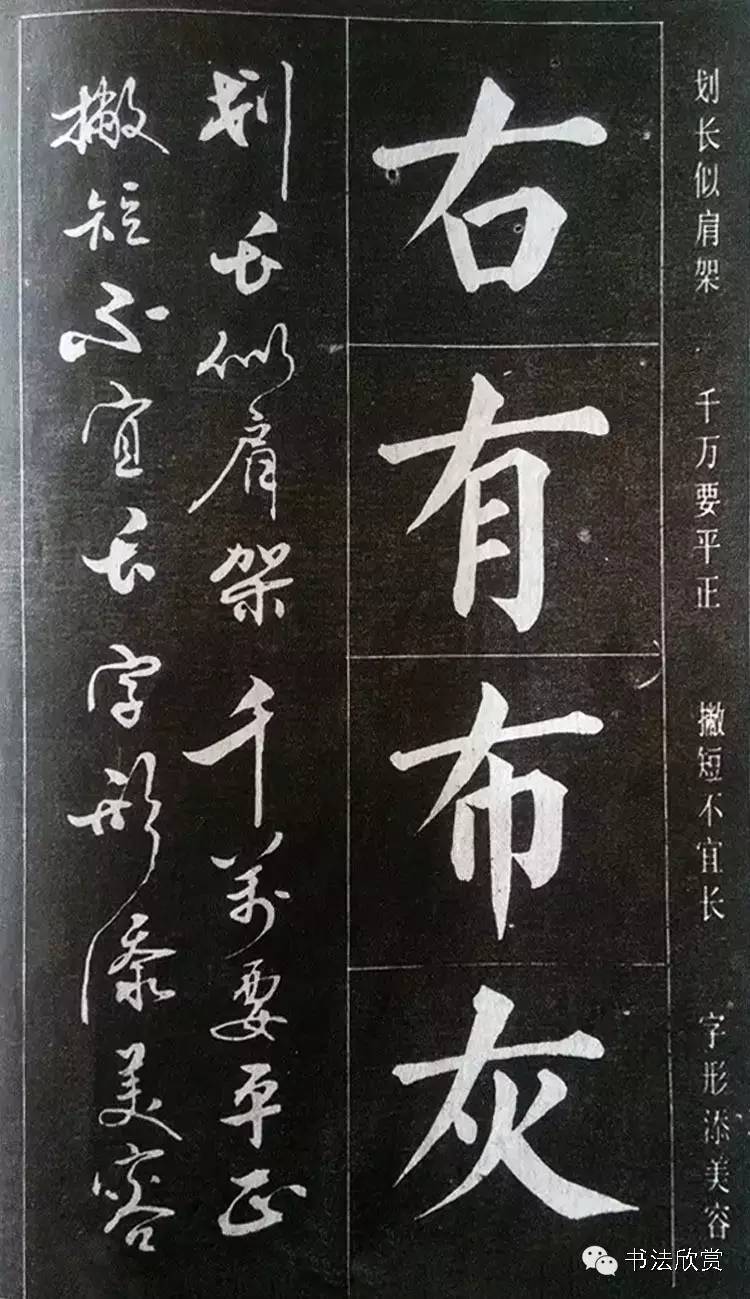 划长似肩架 千万要平正 撇短不宜长 字形添美容
右
有
布
灰
划长似肩架千萬要平正
撇短不宜长字形添美容
书法欣赏